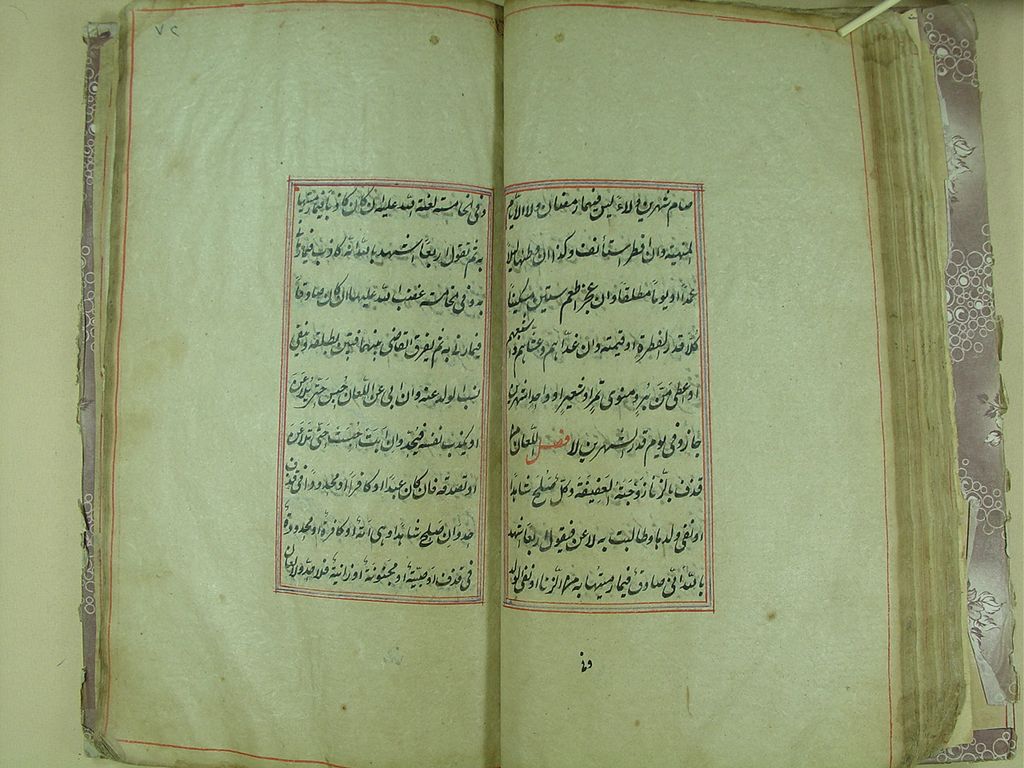 صام شهرين ولاء ليس فيهما رمضان ولا الايام
المنهية وان افطر استأنف وكذا ان وطئها ليلا
عمدا او يوما مطلقا وان عجز اطعم ستين مسكينا
كلا قدر الفطرة او قيمته وان غداهم وعشاهم واشبعهم
او اعطى من بر ومنوى تمر او شعير او واحدا شهرين
جاز وفى يوم قدر الشهرين لا فصل اللعان من
قذف بالزنا زوجته العفيفة وكل صلح شاهدا
او نفى ولدها وطالبت به لاعن فيقول اربعا اشهد
بالله انى صادق فيما رميتها به من الزنا او نفى الولد
وفى
٧٢
وفى الخامسة لعنة الله عليه ان كان كاذبا فيما رميتها
به ثم تقول اربعا اشهد بالله انه كاذب فيما رمانى
به وفى الخامسة غضب الله عليها ان كان صادقا
فيما رمانى به ثم يفرق القاضى بينهما فتبين بطلقة وينفى
نسب الولد عنه وان ابى عن اللعان حبس حتى يلاعن
او يكذب نفسه فيحد وان ابت حبست حتى تلاعن
او تصدقه فان كان عبدا او كافرا او محدودا فى قذف
حد وان صلح شاهدا وهى امة او كافرة او محدودة
فى قذف او صبية او مجنونة او زانية فلا حد ولا لعان